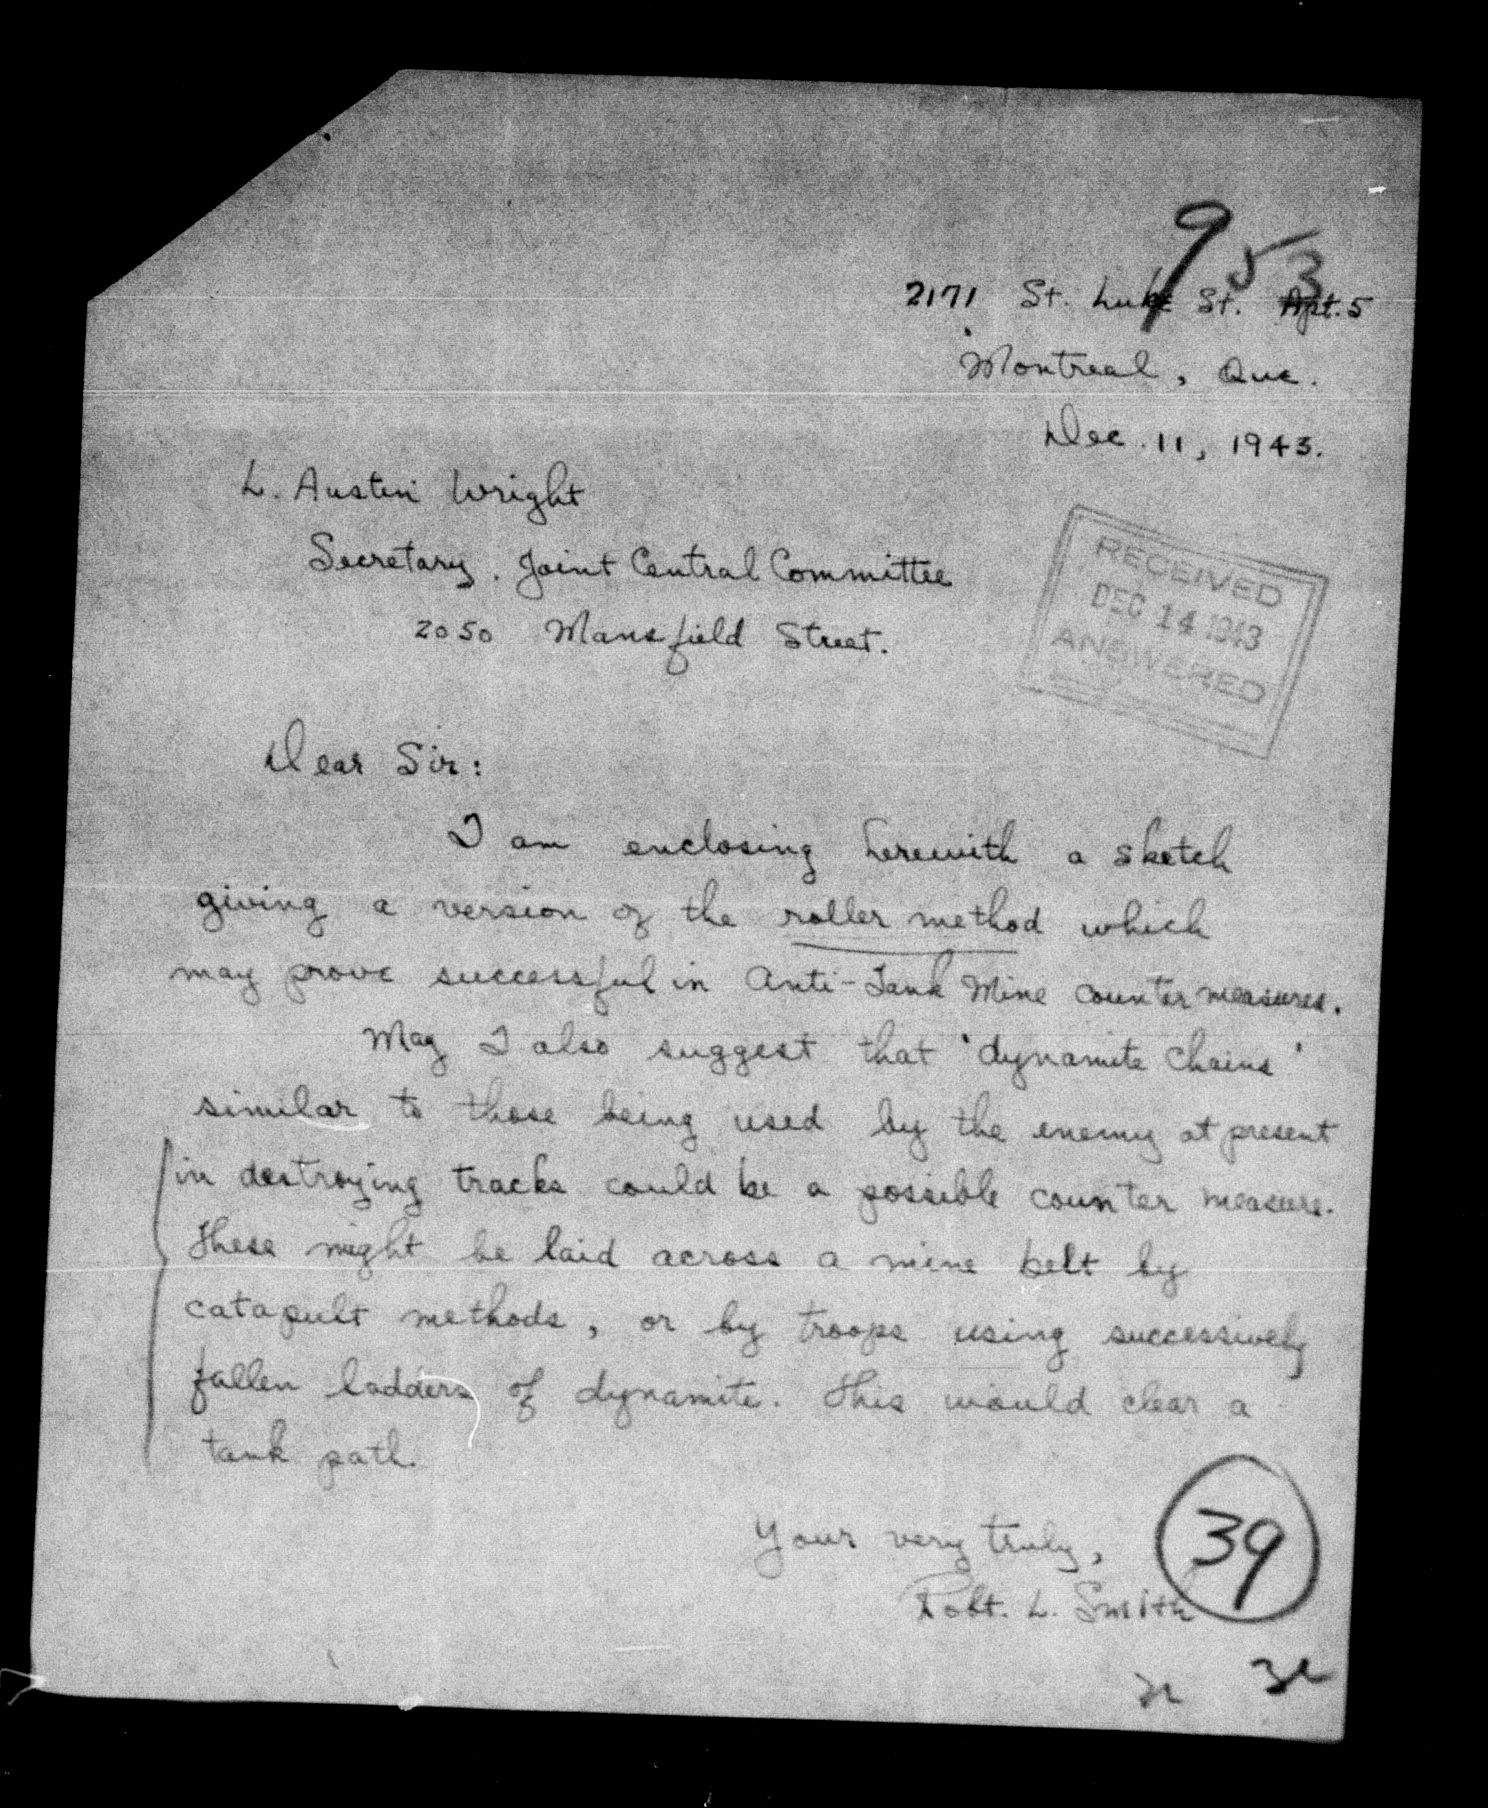 953
2171 St. Luke St. Apt. 5
Montreal, Que.
Dec. 11, 1943.
L. Austin Wright
Secretary. Joint Central Committee
2050 Mansfield Street.
RECEIVED
DEC 14 1943
ANSWERED
Dear Sir:
I am enclosing herewith a sketch
giving a version of the roller method which
may prove successful in Anti-Tank Mine counter measures.
May I also suggest that 'dynamite chains'
similar to those being used by the enemy at present
in destroying tracks could be a possible counter measure.
These might be laid across a mine belt by
catapult methods, or by troops using successively
fallen ladders of dynamite. This would clear a
tank path.
Your very truly,
Robt. L. Smith
39